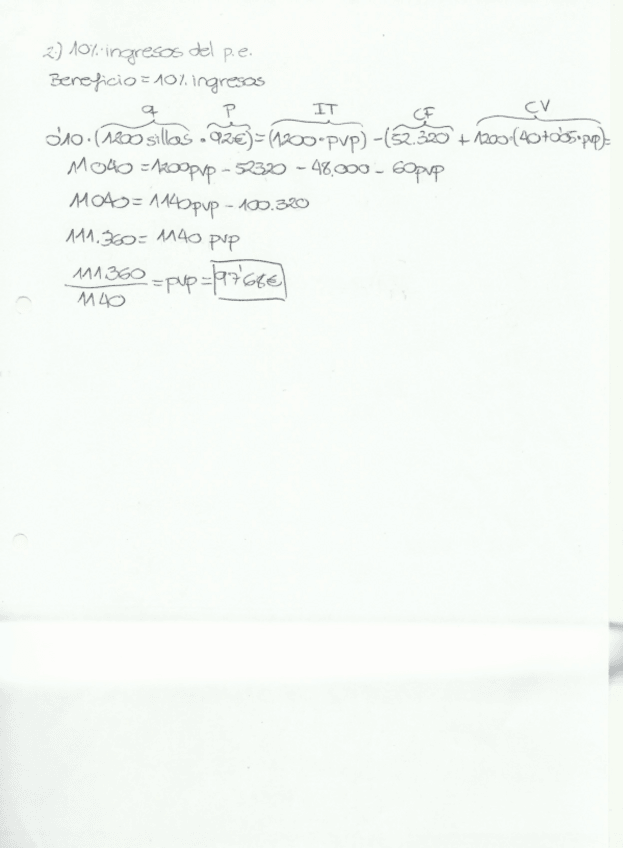 2.) 10% ingresos del p.e.
Beneficio = 10% ingresos
q P IT CF CV
0'10 · (1200 sillas · 92€) = (1200 · pvp) - (52.320 + 1200 · (40 + 0'05 · pvp) =
11040 = 1200pvp - 52320 - 48.000 - 60pvp
11040 = 1140pvp - 100.320
111.360 = 1140 pvp
111.360 / 1140 = pvp = 97'68€